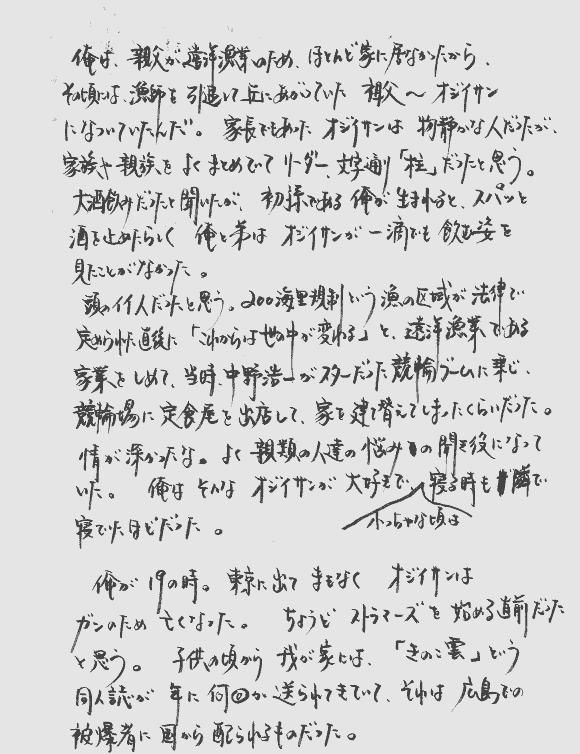 俺は、親父が遠洋漁業のため、ほとんど家に居なかったから、
その頃には、漁師を引退して丘にあがっていた 祖父〜オジイサン
になついていたんだ。 家長でもあった オジイサンは 物静かな人だったが、
家族や親族を よくまとめていて リーダー、文字通り「柱」だったと思う。
大酒飲みだったと聞いたが、 初孫である 俺が 生まれると、スパッと
酒を止めたらしく 俺と弟は オジイサンが 一滴でも 飲む姿を
見たことがなかった。
頭のイイ人だったと思う。200海里規制という漁の区域が 法律で
定められた直後に「これからは世の中が変わる」と、遠洋漁業である
家業をしめて、当時、中野浩一がスターだった競輪ブームに乗じ、
競輪場に 定食屋を 出店して、家を建て替えてしまったくらいだった。
情が深かったな。よく 親類の人達の 悩みの 聞き役になって
いた。 俺は そんな オジイサンが 大好きで、寝る時も 隣で
小っちゃな頃は
寝ていたほどだった。
俺が 19の時。 東京に出て まもなく オジイサンは
ガンのため 亡くなった。 ちょうど ストラマーズを 始める直前だった
と思う。 子供の頃から 我が家には、「きのこ雲」という
同人誌が 年に 何回か送られてきていて、それは 広島での
被爆者に 国から 配られるものだった。